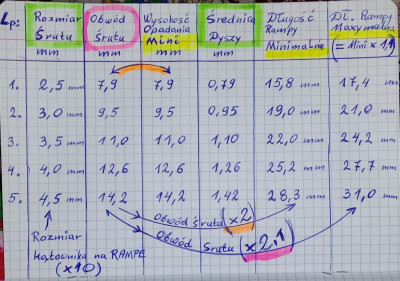 Lp: Rozmiar Śrutu mm Obwód Śrutu mm Wysokość Opadania Mini mm Średnica Dyszy mm Długość Rampy Minimalna Dł. Rampy Maxymalna (= Mini × 1,1)
1. 2,5 mm 7,9 7,9 0,79 15,8 mm 17,4 mm
2. 3,0 mm 9,5 9,5 0,95 19,0 mm 21,0 mm
3. 3,5 mm 11,0 11,0 1,10 22,0 mm 24,2 mm
4. 4,0 mm 12,6 12,6 1,26 25,2 mm 27,7 mm
5. 4,5 mm 14,2 14,2 1,42 28,3 mm 31,0 mm
Obwód śrutu (×2)
Obwód Śrutu (×2,1)
Rozmiar
Kątownika na RAMPE
(×10)